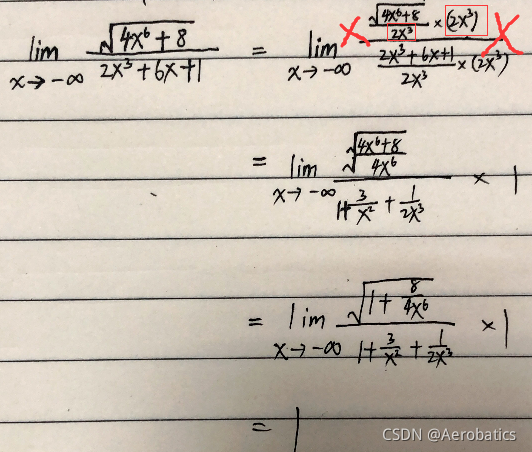 lim x→-∞ √(4x⁶+8) / (2x³+6x+1) = lim x→-∞ (√(4x⁶+8) / 2x³ × (2x³)) / ((2x³+6x+1) / 2x³ × (2x³))
= lim x→-∞ √((4x⁶+8) / 4x⁶) / (1+3/x² + 1/2x³) × 1
= lim x→-∞ √(1+8/4x⁶) / (1+3/x² + 1/2x³) × 1
= 1
CSDN @Aerobatics